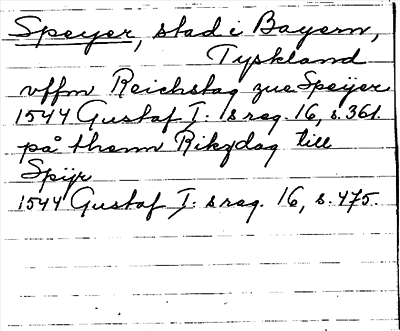 Speyer, stad i Bayern,
Tyskland
vffm Reichstag zue Speÿer
1544 Gustaf I:s reg. 16, s. 361.
på thenn Rikzdag till
Spijr
1544 Gustaf I:s reg. 16, s. 475.